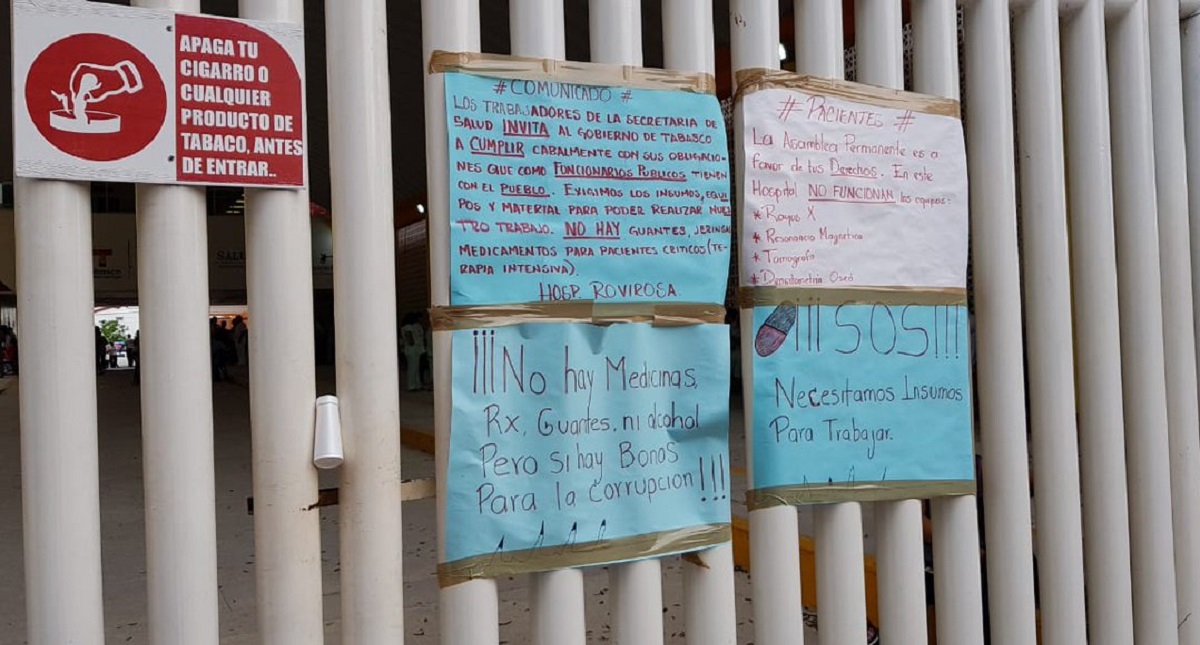 APAGA TU
CIGARRO O
CUALQUIER
PRODUCTO DE
TABACO, ANTES
DE ENTRAR..
#COMUNICADO #
LOS TRABAJADORES DE LA SECRETARIA DE
SALUD INVITA AL GOBIERNO DE TABASCO
A CUMPLIR CABALMENTE CON SUS OBLIGACIO-
NES QUE COMO FUNCIONARIOS PUBLICOS TIENEN
CON EL PUEBLO. EXIGIMOS LOS INSUMOS, EQUI
POS Y MATERIAL PARA PODER REALIZAR NUES
TRO TRABAJO. NO HAY GUANTES, JERINGA
MEDICAMENTOS PARA PACIENTES CRITICOS (TE-
RAPIA INTENSIVA).
HOSP. ROVIROSA.
¡¡¡No hay Medicinas,
Rx, Guantes, ni alcohol
Pero si hay Bonos
Para la Corrupcion!!!
# PACIENTES #
La Asamblea Permanente es a
favor de tus Derechos. En este
Hospital NO FUNCIONAN los equipos:
* Rayos X
* Resonancia Magnetica
* Tomografo
* Densitometria Osea
¡¡¡SOS!!!
Necesitamos Insumos
Para Trabajar.